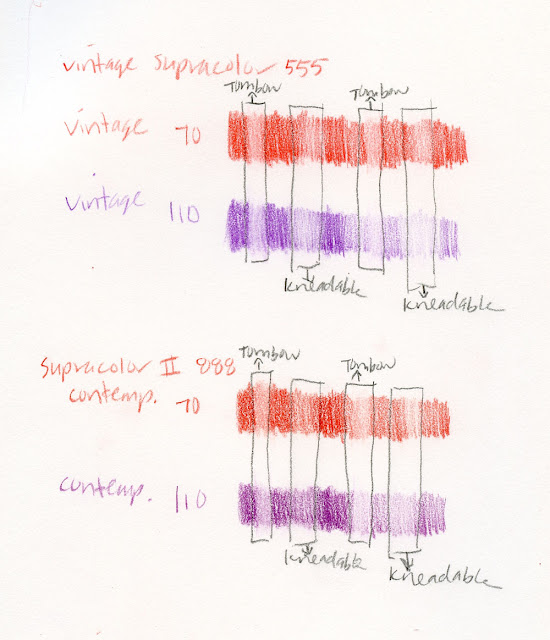 vintage supracolor 555
Tombow Tombow
vintage 70
vintage 110
kneadable kneadable
Supracolor II 888
Tombow Tombow
contemp. 70
contemp. 110
kneadable kneadable